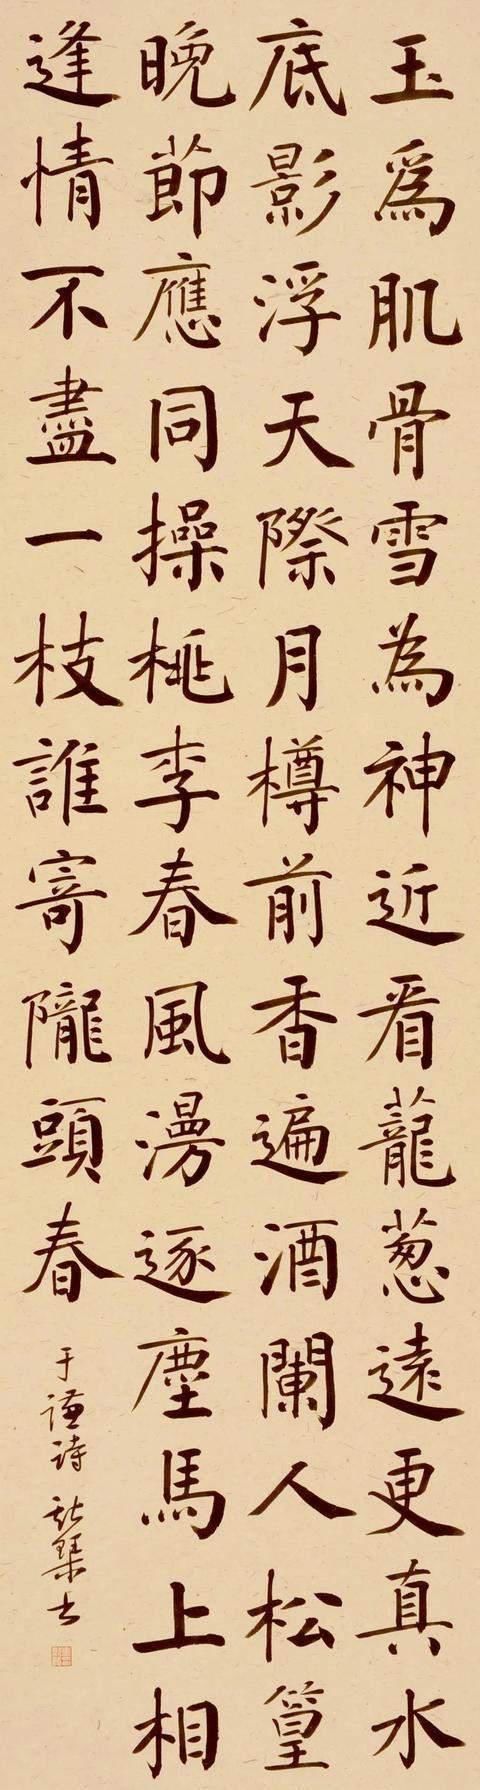 玉為肌骨雪為神近看蘢葱遠更真水
底影浮天際月樽前香遍酒闌人松篁
晚節應同操桃李春風漫逐塵馬上相
逢情不盡一枝誰寄隴頭春
于謙詩